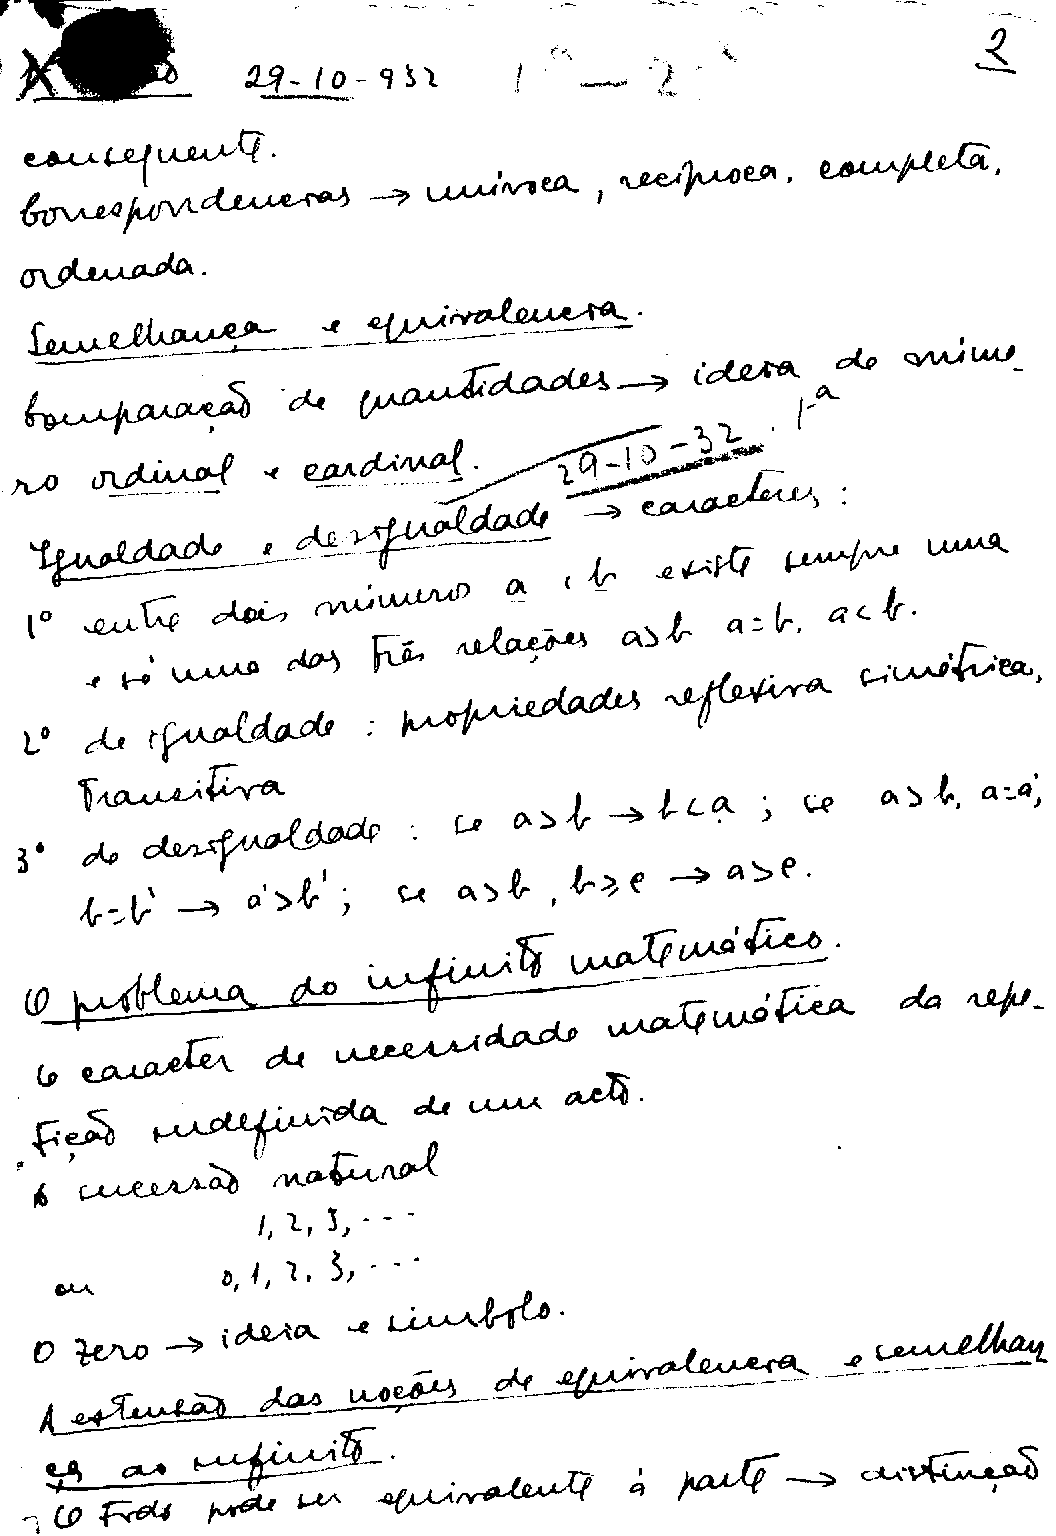 2
29-10-932 1ª - 2ª
consequente.
Correspondencias → unívoca, recíproca, completa,
ordenada.
Semelhança e equivalencia.
Comparação de quantidades → ideia de núme-
ro ordinal e cardinal.
29-10-32. 1ª
Igualdade e desigualdade → caracteres:
1º entre dois números a e b existe sempre uma
e só uma das três relações a>b a=b, a<b.
2º de igualdade: propriedades reflexiva simétrica,
transitiva
3º de desigualdade: se a>b → b<a; se a>b, a=a',
b=b' → a'>b'; se a>b, b≥c → a>c.
O problema do infinito matemático.
O caracter de necessidade matemática da repe-
tição indefinida de um acto.
A sucessão natural
1, 2, 3, ...
ou 0, 1, 2, 3, ...
O zero → ideia e simbolo.
A extensão das noções de equivalencia e semelhan
ça ao infinito.
O todo pode ser equivalente á parte → distinção